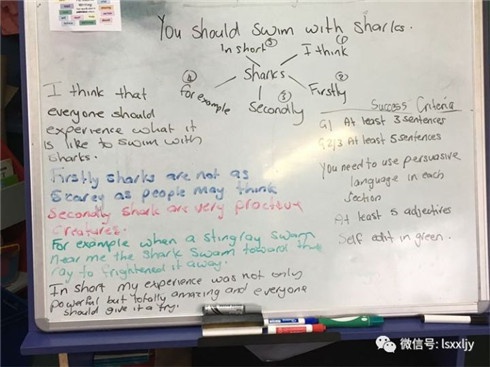 You Should Swim with Sharks.
In short ⑤
I think ①
Sharks
④
For example
Secondly ③
Firstly ②
I think that
everyone should
experience what it
is like to swim with
sharks.
Firstly sharks are not as
Scarey as people may think
Secondly shark are very proctive
Creatures.
For example when a stingray swam
near me the Shark Swam toward the
ray to frightened it away.
In short my experience was not only
powerful but totally amazing and everyone
should give it a try.
Success Criteria
G1 At least 3 sentences
G2/3 At least 5 sentences
You need to use persuasive
language in each
section
At least 5 adjectives
Self edit in green.
微信号: lsxxljy